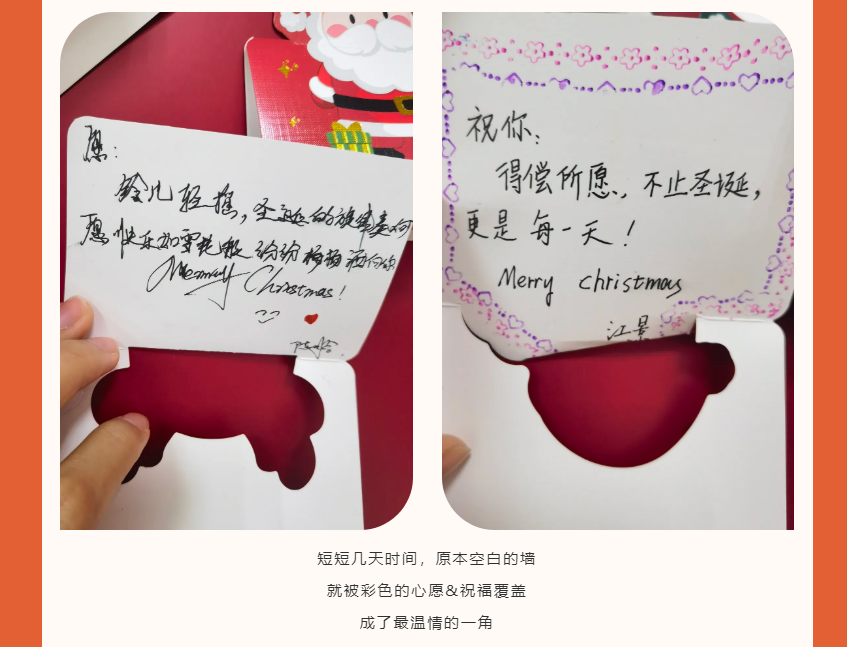 愿:
铃儿轻摇,圣诞的旋律奏响
愿快乐如雪花般纷纷扬扬洒向你
Merry Christmas!
祝你:
得偿所愿、不止圣诞,
更是每一天!
Merry christmas
江景
短短几天时间，原本空白的墙
就被彩色的心愿&祝福覆盖
成了最温情的一角